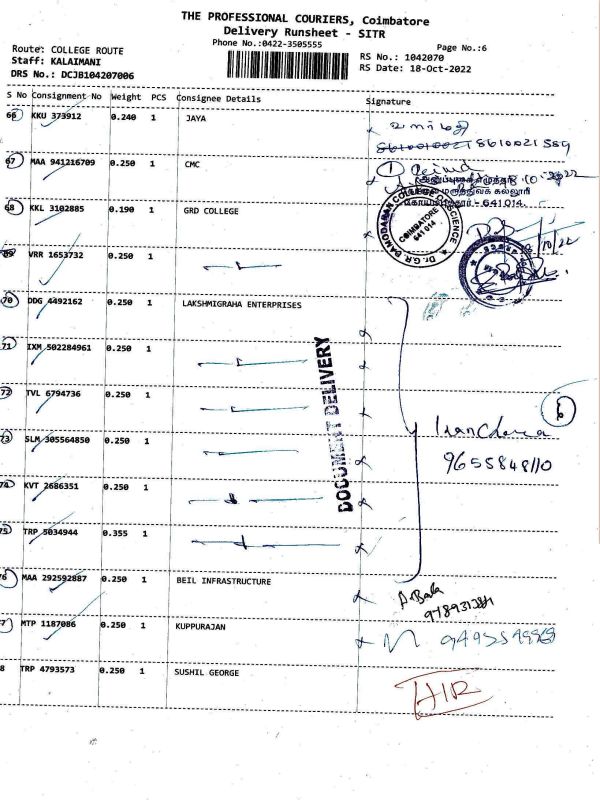 THE PROFESSIONAL COURIERS, Coimbatore
Delivery Runsheet - SITR
Phone No.:0422-3505555
Page No.:6
Route: COLLEGE ROUTE
RS No.: 1042070
Staff: KALAIMANI
RS Date: 18-Oct-2022
DRS No.: DCJB104207006
S No Consignment No Weight PCS Consignee Details Signature
66 KKU 373912 0.240 1 JAYA
வளர்மதி
8610021589
67 MAA 941216709 0.250 1 CMC
மருத்துவக் கல்லூரி
641 014.
68 KKL 3102885 0.190 1 GRD COLLEGE
Dr.G.R DAMODARAN COLLEGE OF SCIENCE
COIMBATORE
641 014
69 VRR 1653732 0.250 1
70 DDG 4492162 0.250 1 LAKSHMIGRAHA ENTERPRISES
71 IXM 502284961 0.250 1
72 TVL 6794736 0.250 1
6
73 SLM 305564850 0.250 1
9655848110
74 KVT 2686351 0.250 1
75 TRP 5034944 0.355 1
DOCUMENT DELIVERY
76 MAA 292592887 0.250 1 BEIL INFRASTRUCTURE
A. Bala
77 MTP 1187086 0.250 1 KUPPURAJAN
8 TRP 4793573 0.250 1 SUSHIL GEORGE